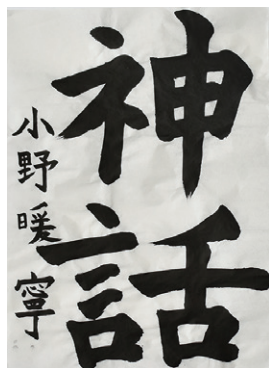 神話
小野暖寧